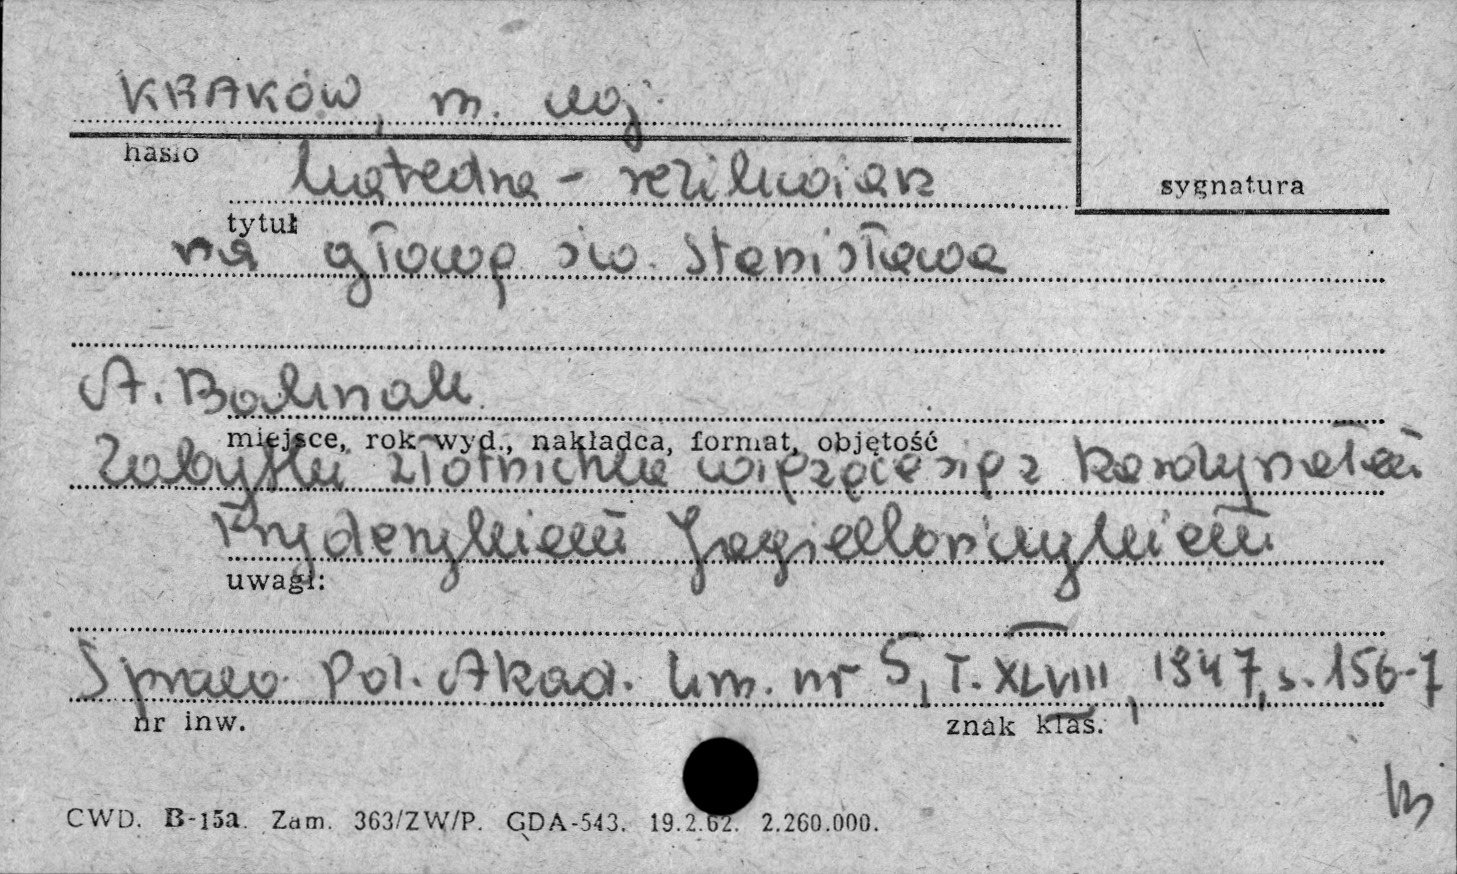 KRAKÓW, m. woj.
hasło
Katedra - relikwiarz
sygnatura
tytuł
na głowę św. Stanisława
A. Bochnak
miejsce, rok wyd., nakładca, format, objętość
Zabytki złotnicze wiążące się z kardynałem
Fryderykiem Jagiellończykiem
uwagi:
Spraw. Pol. Akad. Um. nr 5, T. XLVIII, 1947, s. 156-7
nr inw.
znak klas.
CWD. B-15a. Zam. 363/ZW/P. GDA-543. 19.2.62. 2.260.000.